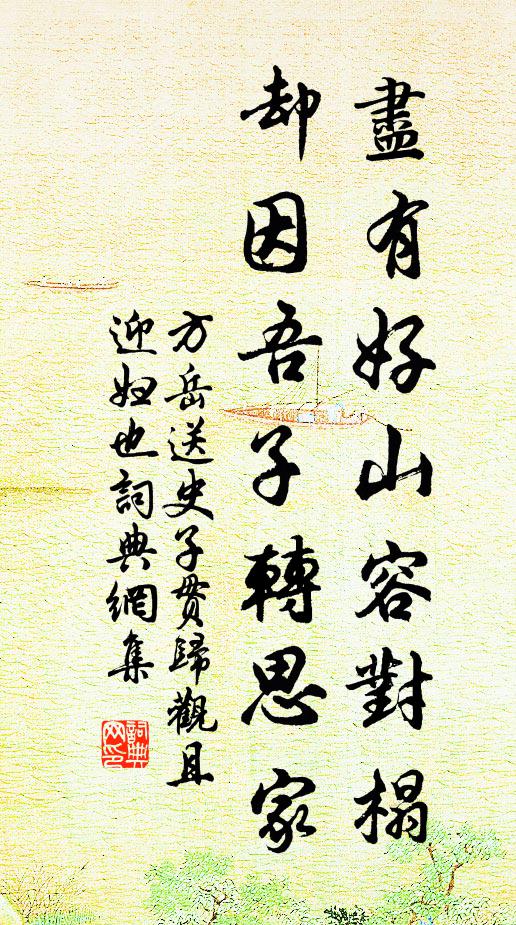 盡有好山容對榻
却因吾子轉思家
方岳送史子貫歸觀且
迎婦也詞典網集
詞典
网印